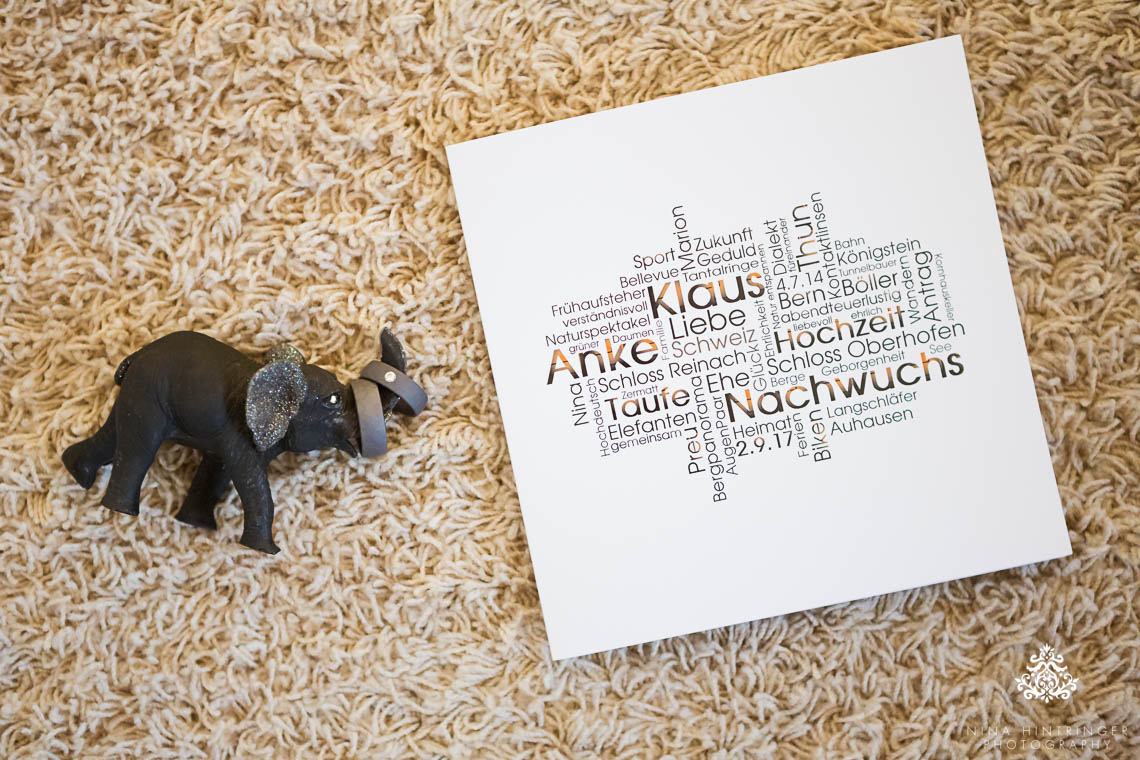 Sport
Marion
Zukunft
Geduld
Tantalringe
Bellevue
Frühaufsteher
verständnisvoll
Klaus
Naturspektakel
grüner Daumen
Familie
Liebe
Anke
Schweiz
Nina
Hochdeutsch
Schloss Reinach
Zermatt
Taufe
Elefanten
gemeinsam
Natur
entspannen
Dialekt
füreinander
Thun
Kontaktlinsen
Bahn
Königstein
Tunnelbauer
4.7.14
Bern
Böller
abenteuerlustig
Ehrlichkeit
liebevoll
ehrlich
Wandern
Antrag
Kornhauskeller
Hochzeit
Schloss Oberhofen
Glück
Berge
Geborgenheit
See
Ehe
Nachwuchs
Preu
Bergpanorama
AugenPaar
Heimat
2.9.17
Ferien
Biken
Langschläfer
Auhausen
NINA HINTRINGER
PHOTOGRAPHY